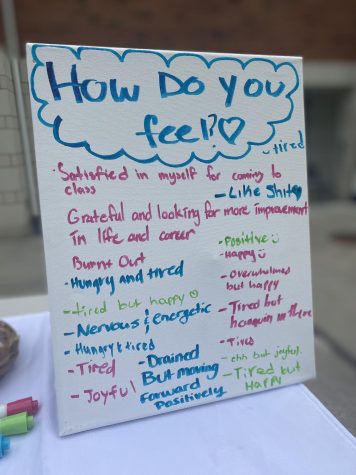 How Do you
feel?♡
- tired
Satisfied in myself for coming to
class
- Like Shit♥
Grateful and looking for more improvement
in life and career
Burnt Out
- Hungry and tired
- tired but happy ☺
- Nervous & energetic
- Hungry & tired
- Tired
- Joyful
- Drained
But moving
Forward
Positively
- Positive :)
- Happy :)
- overwhelmed
but happy
- Tired but
in there
- Tired
- ehh but joyful.
- Tired but
Happy